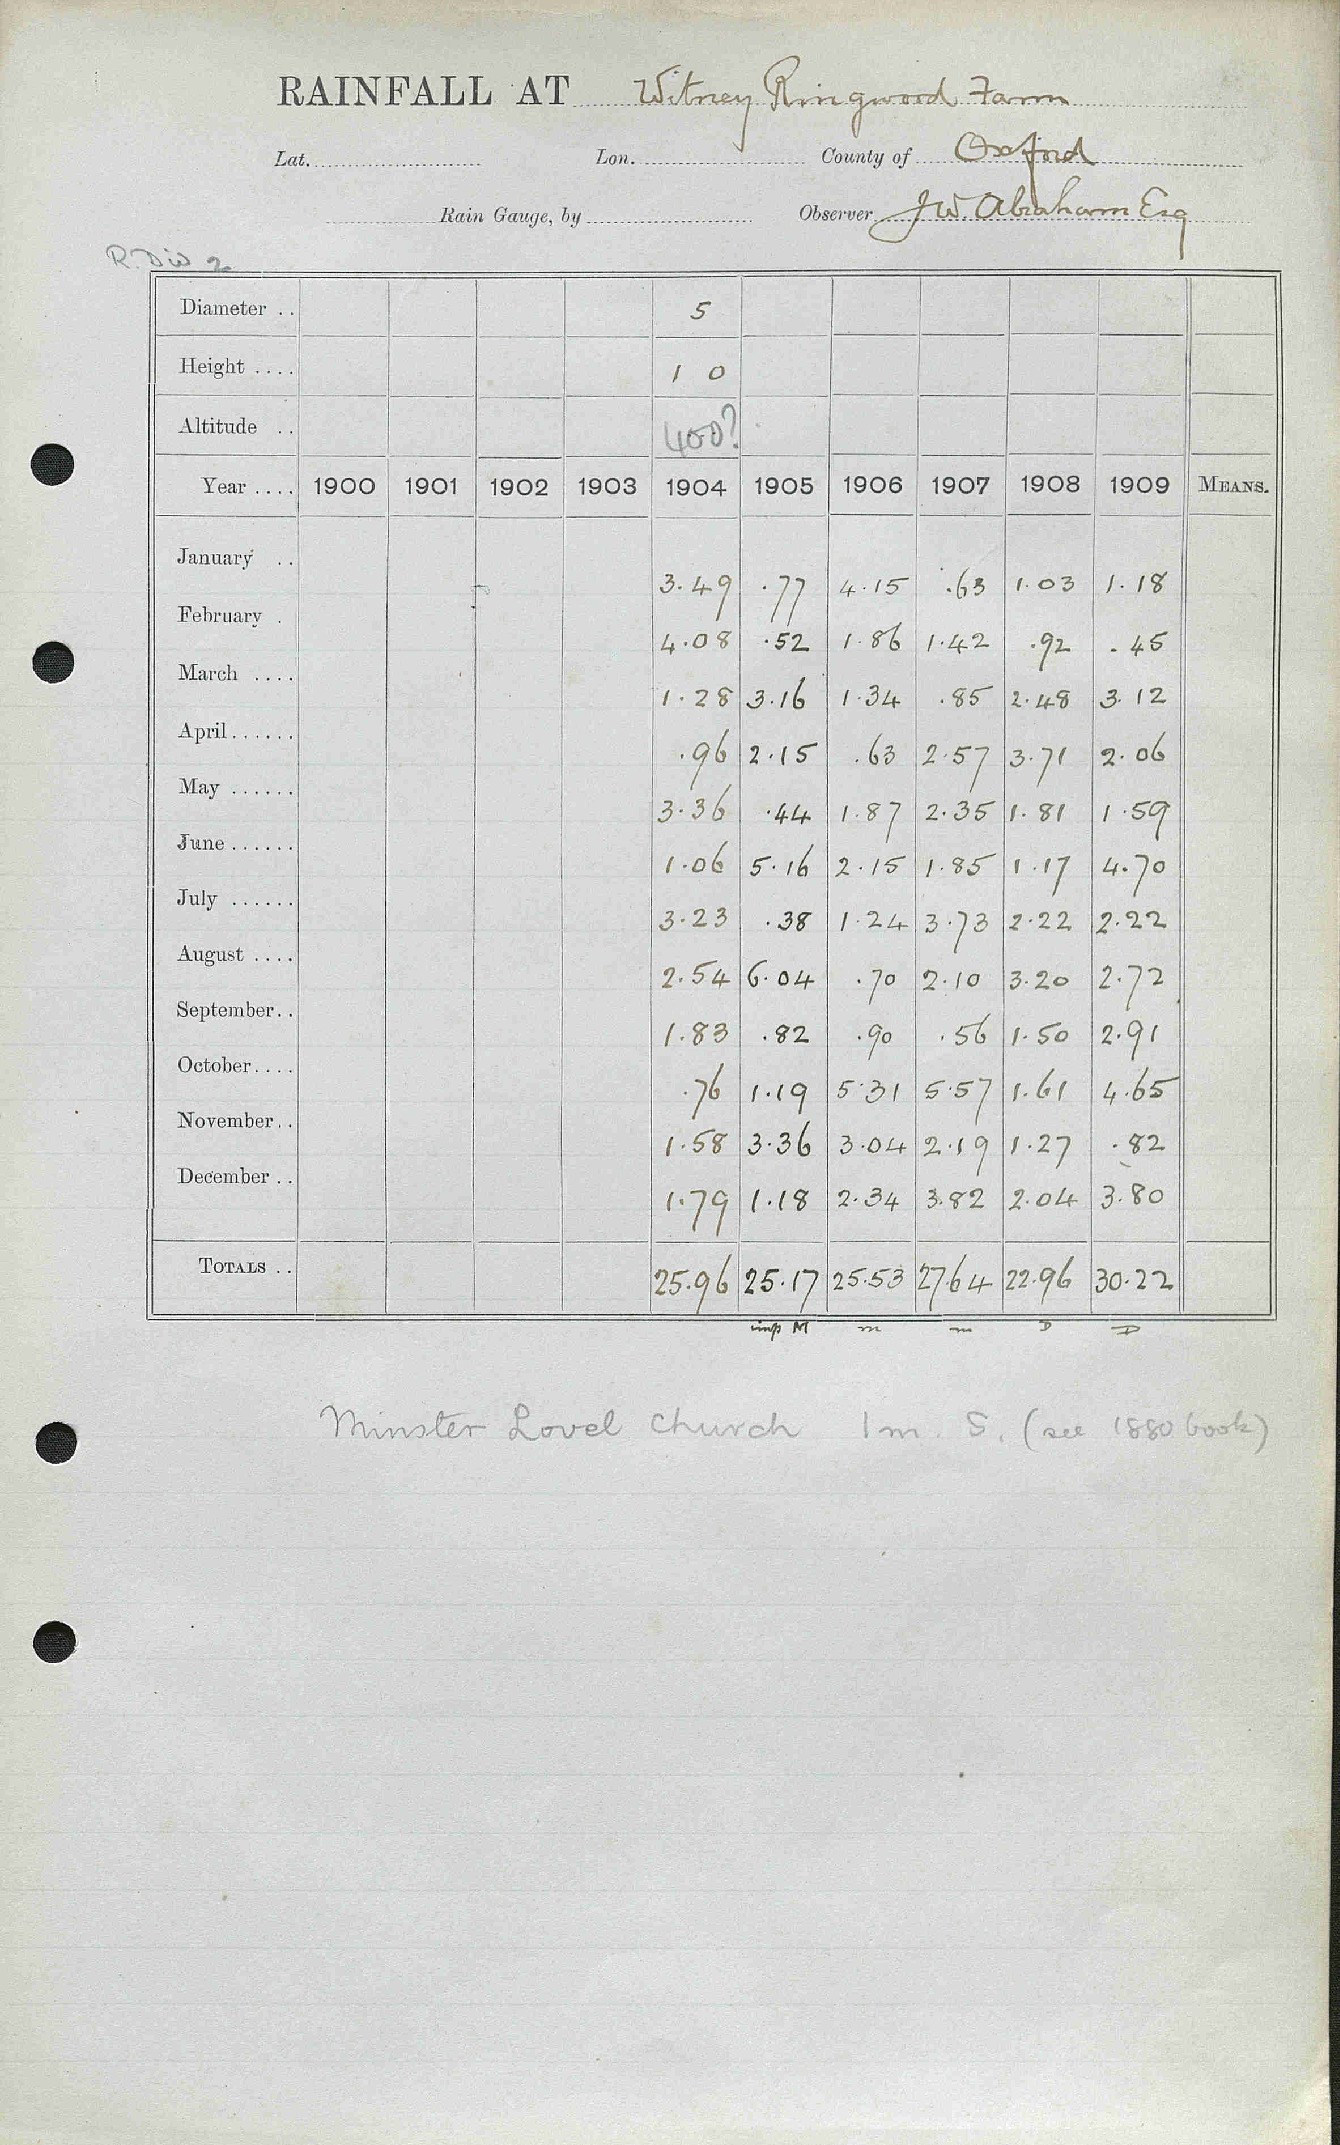 RAINFALL AT Witney Ringwood Farm
Lat. Lon. County of Oxford
Rain Gauge, by Observer J.W. Abraham Esq
R. Div 2
Diameter .. 5
Height .... 1 0
Altitude .. 400?
Year .... 1900 1901 1902 1903 1904 1905 1906 1907 1908 1909 MEANS.
January .. 3.49 .77 4.15 .63 1.03 1.18
February . 4.08 .52 1.86 1.42 .92 .45
March .... 1.28 3.16 1.34 .85 2.48 3.12
April...... .96 2.15 .63 2.57 3.71 2.06
May ...... 3.36 .44 1.87 2.35 1.81 1.59
June ...... 1.06 5.16 2.15 1.85 1.17 4.70
July ...... 3.23 .38 1.24 3.73 2.22 2.22
August .... 2.54 6.04 .70 2.10 3.20 2.72
September.. 1.83 .82 .90 .56 1.50 2.91
October.... .76 1.19 5.31 5.57 1.61 4.65
November.. 1.58 3.36 3.04 2.19 1.27 .82
December .. 1.79 1.18 2.34 3.82 2.04 3.80
TOTALS .. 25.96 25.17 25.53 2764 22.96 30.22
imp M m m D D
Minster Lovel Church 1m. S. (see 1880 book)